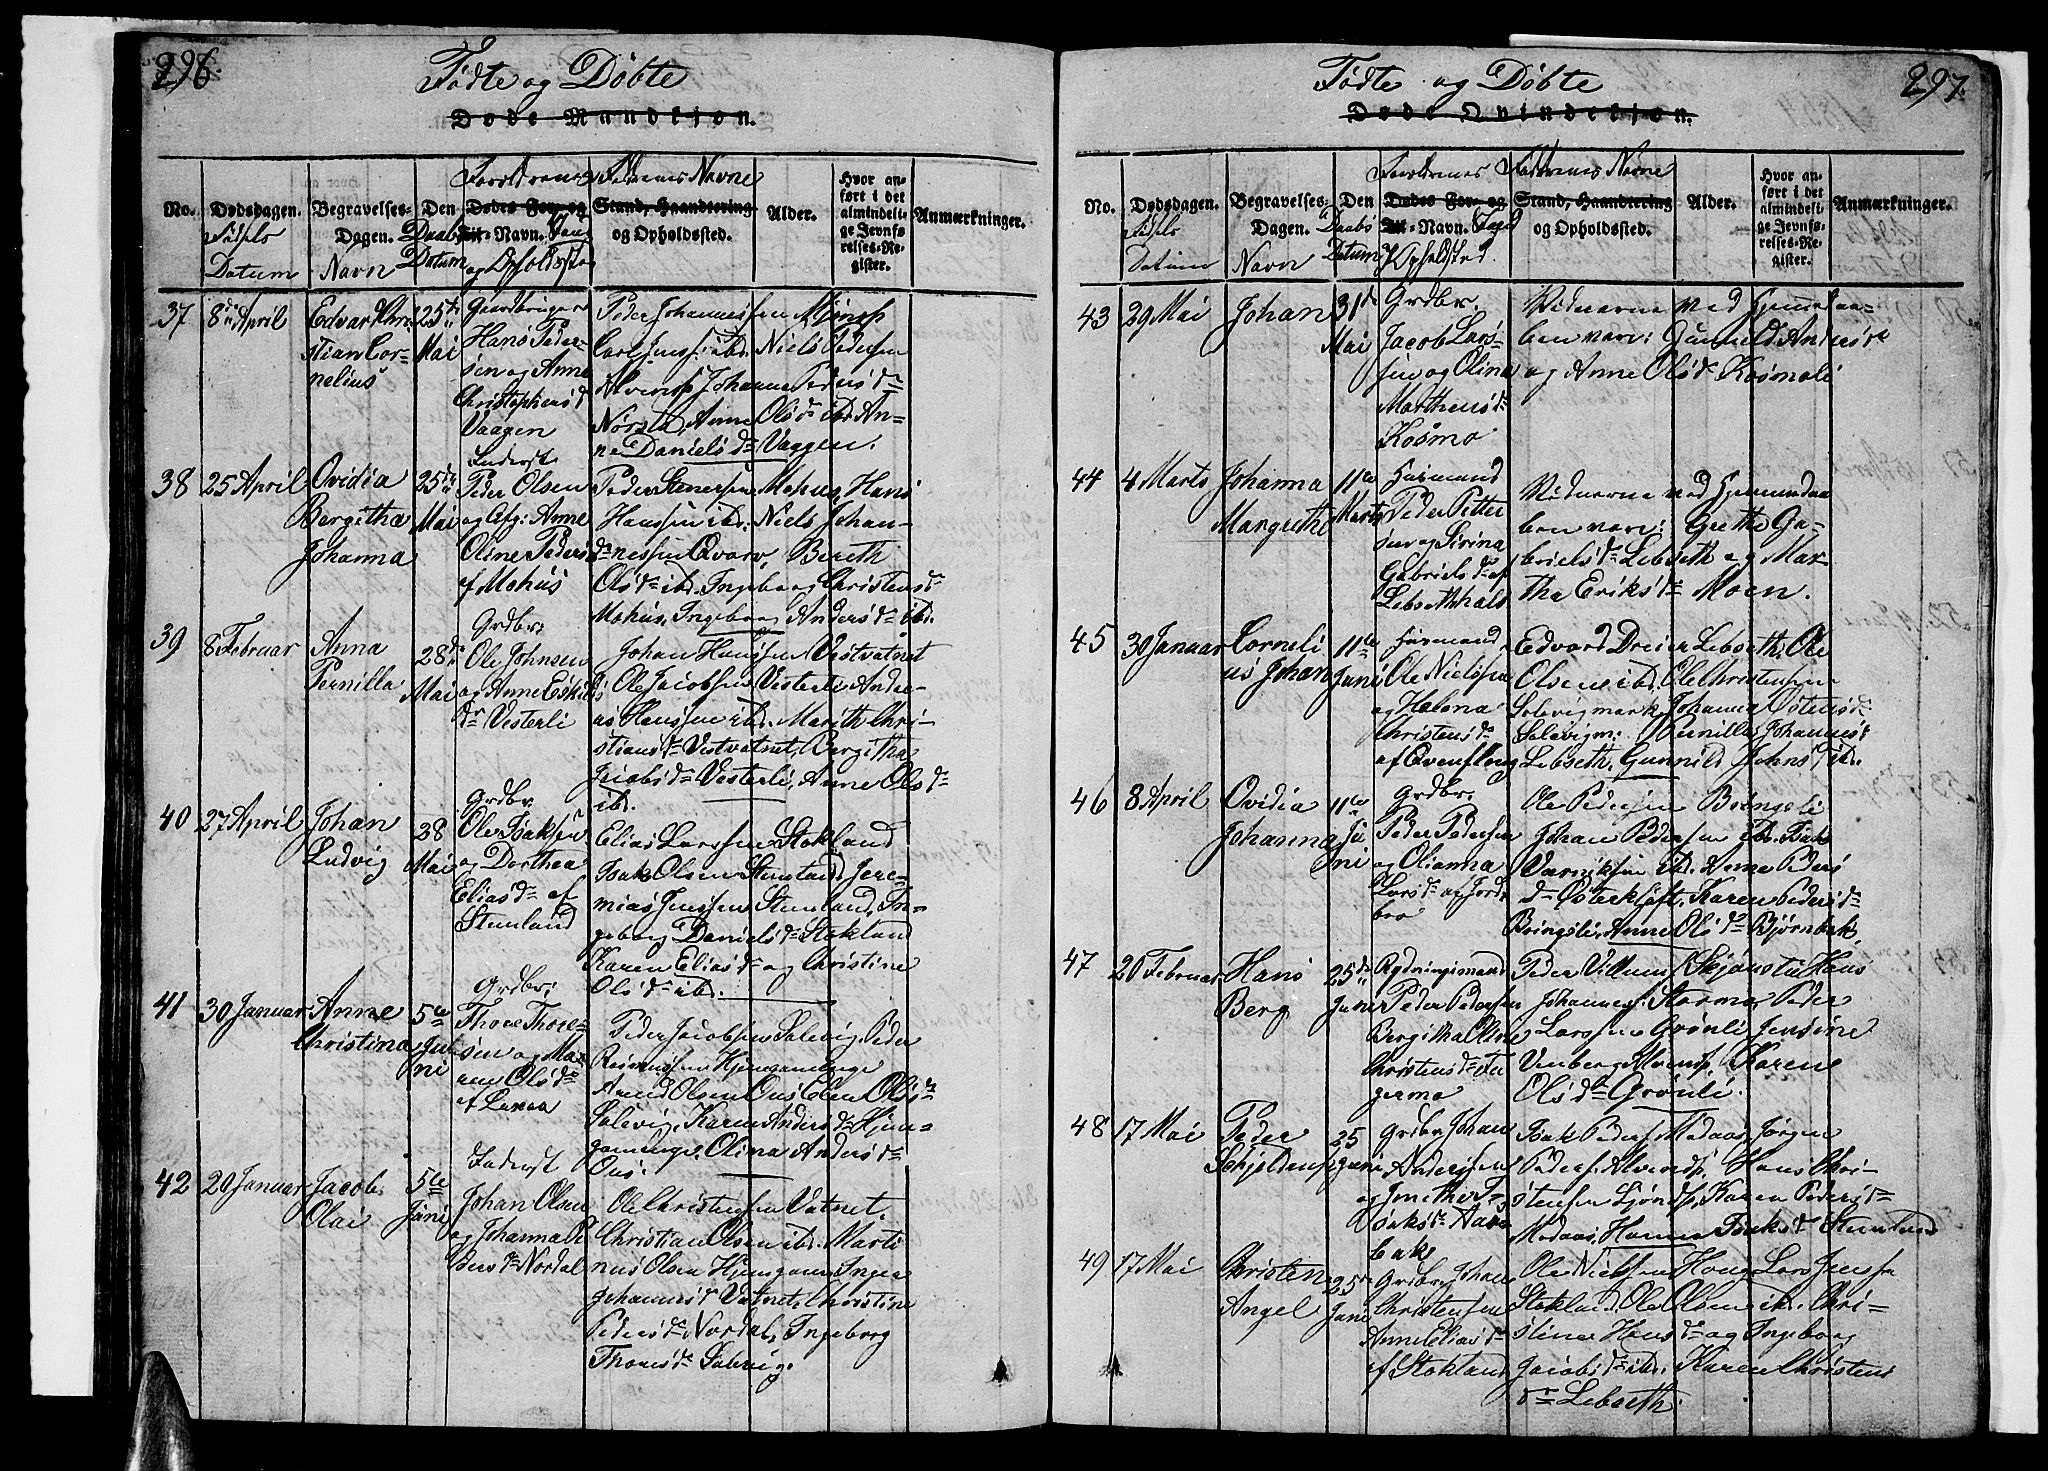 296
Fødte og Døbte
Døde Mandkjøn.
No.
Dødsdagen.
Fødsels
Datum
Begravelses-
Dagen.
Navn
Den
Daabs
Datum
Forældrenes
Dødes For- og
Til-Navn.
og Opholdsted
Faddernes Navne
Stand, Haandtering
og Opholdssted.
Alder.
Hvor an-
ført i det
almindeli-
ge Jevnfø-
relses-Re-
gister.
Anmærkninger.
37
8de April
Edvart Chri
stian Cor-
nelius
25de
Mai
Gaardbruger
Hans Peder-
sen og Anne
Christophersd
Vaagen
Peder Johannessen
Carl Jenss: ibd. Niels Pedersen
Alvenes Johanne Peders dr
Anne Ols dr ibd. An-
ne Daniels dr Vaagen.
38
25 April
Ovidia
Bergitha
Johanna
25de
Mai
Inderst
Peder Olsen
og Efg: Anne
Oline Peders
dr af Mohus
Peder Stenersen Mohus Hans
Hanssen ibd. Niels Johan-
nessen Qvarv, Bereth
Ols dr ibd. Ingeborg Christens dr
Mohus, Ingeborg Anders dr ibd.
39
8 Februar
Anna
Pernilla
28de
Mai
Grdbr:
Ole Johnsen
og Anne Eskils
dr Vesterli
Johan Hanssen Vestvatnet
Ole Jacobsen Vesterli Andre-
as Hanssen ibd. Marith Chri-
stians dr Vestvatnet, Bergitha
Jacobs dr Vesterli, Anne Ols dr
ibd.
40
27 April
Johan
Ludvig
28
Mai
Grdbr.
Ole Isaksen
og Dorthea
Elias dr af
Stemland
Elias Larssen Stokland
Isak Olsen Stemland, Jere-
mias Jenssen Stemland, In-
geborg Daniels dr Stokland
Karen Elias dr og Christine
Ols dr ibd.
41
30 Januar
Anne
Christina
5te
Ju-
ni
Grdbr:
Thore Thore-
sen og Ma-
ren Ols dr
Peder Jacobsen Solevig, Peder
Rasmussen Hjemgamlinge
Arnd Olsen Ous Elen Ols dr
Solevig, Karen Anders dr Hjem-
gamlinge, Olina Anders dr
Ous.
42
20 Januar
Jacob
Olai
5te
Juni
Inderst
Johan Olsen
og Johanna Pe
ders dr Nordal
Ole Christensen Vatnet,
Christian Olsen ibd. Marti
nus Olsen Hjemgam: Inger
Johannes dr Vatnet, Christine
Peders dr Nordal, Ingeborg
Thores dr Solevig.
297.
Fødte og Døbte
Døde Qvindekjøn.
No.
Dødsdagen.
Fødsels
Datum
Begravelses-
Dagen.
Navn
Den
Daabs
Datum
Forældrenes
Dødes For- og
Til-Navn.
Opholdsted
Faddrenes Navne
Stand, Haandtering
og Opholdssted.
Alder.
Hvor an-
ført i det
almindeli-
ge Jevnfø-
relses-Re-
gister.
Anmærkninger.
43
29 Mai
Johan
31de
Mai
Grdbr
Jacob Lars-
sen og Olina
Marthens d
Kosmo
Vidnerne ved Hjemmedaa-
ben vare: Gunild Anders dr
og Anne Ols dr Kosmoli
44
4 Marts
Johanna
Margrethe
11te
Marts
Huusmand
Peder Petter
sen og Sirina
Gabriels dr af
Lebsethhals
Vidnerne ved Hjemmedaa
ben vare: Grethe Ga-
briels dr Lebseth og Mar-
tha Eriks dr Moen.
45
30 Januar
Corneli
us Johan
11te
Juni
Huusmand
Ole Nielssen
og Helena
Christens dr
af Evenflong
Edvard Dreier Lebseth, Ole
Olsen ibd. Ole Christensen
Solevigmark, Johanna Ostens dr
Solevigm: Pernilla Johannes dr
Lebseth, Gunnild Johns dr ibd.
46
8 April
Ovidia
Johanna
11te
Ju
ni
Grdbr.
Peder Pedersen
og Olianna
Lars dr af Jord
bro
Ole Pedersen Bringsli
Johan Pedersen ibd. Isak
ibd. Anne Peders
dr Østerkløft, Karen Peders dr
Bringsli, Anne Ols dr Bjørnbak,
47
20 Februar
Hans
Berg
25de
Juni
Rydningsmand
Peder Pedersen
Bergitha Oline
Christens dr Fu
germo
Peder Villums: Skjønstu Hans
Johannes: Stormo, Peder
Larssen Grønli Jensine
Karen
Ols dr Grønli.
48
17 Mai
Peder
25
Juni
Grdbr. Johan
Anderssen
og Jonethe I-
saks dr Aase
bak
Isak Peders: Madaas, Jørgen
Peders: Alvenes, Hans Chri-
stensen, Karen Peders dr
Madaas, Hanna Isaks dr Stemland
49
17 Mai
Christen
Angel
25de
Juni
Grdbr. Johan
Christensen
Anne Elias dr
af Stokland
Ole Nielssen Houg Lars Jenssen
Stokland, Ole Olsen ibd. Chri-
stine Hans dr og Ingeborg
Jacobs dr ibd. Karen Christens
dr Lebseth.